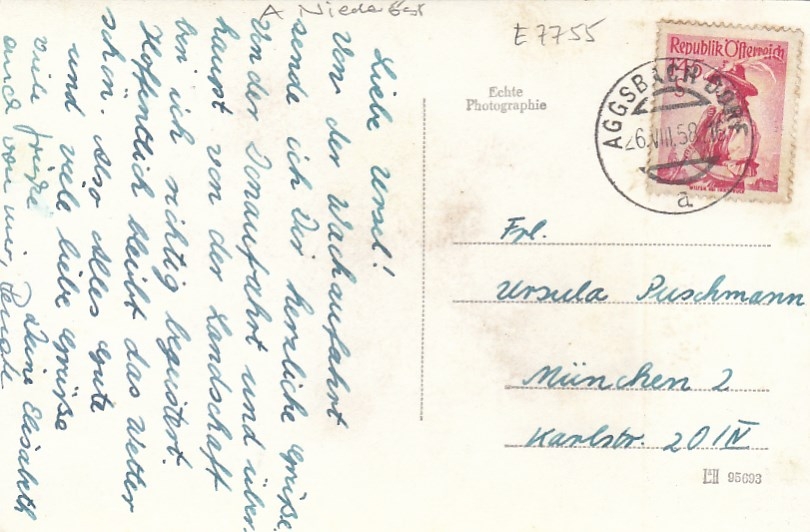 A Niederöst
E 7755
Liebe Ursel!
Von der Wachaufahrt
sende ich Dir herzliche Grüße.
Von der Donaufahrt und über-
haupt von der Landschaft
bin ich richtig begeistert.
Hoffentlich bleibt das Wetter
schön. Also alles Gute
und viele liebe Grüße
Deine Elisabeth
viele Grüße
auch von mir, Renate
Echte
Photographie
Republik Österreich
1.45 S
AGGSBACH-DORF
26.VIII.58
a
Frl.
Ursula Puschmann
München 2
Karlstr. 20/IV
95693